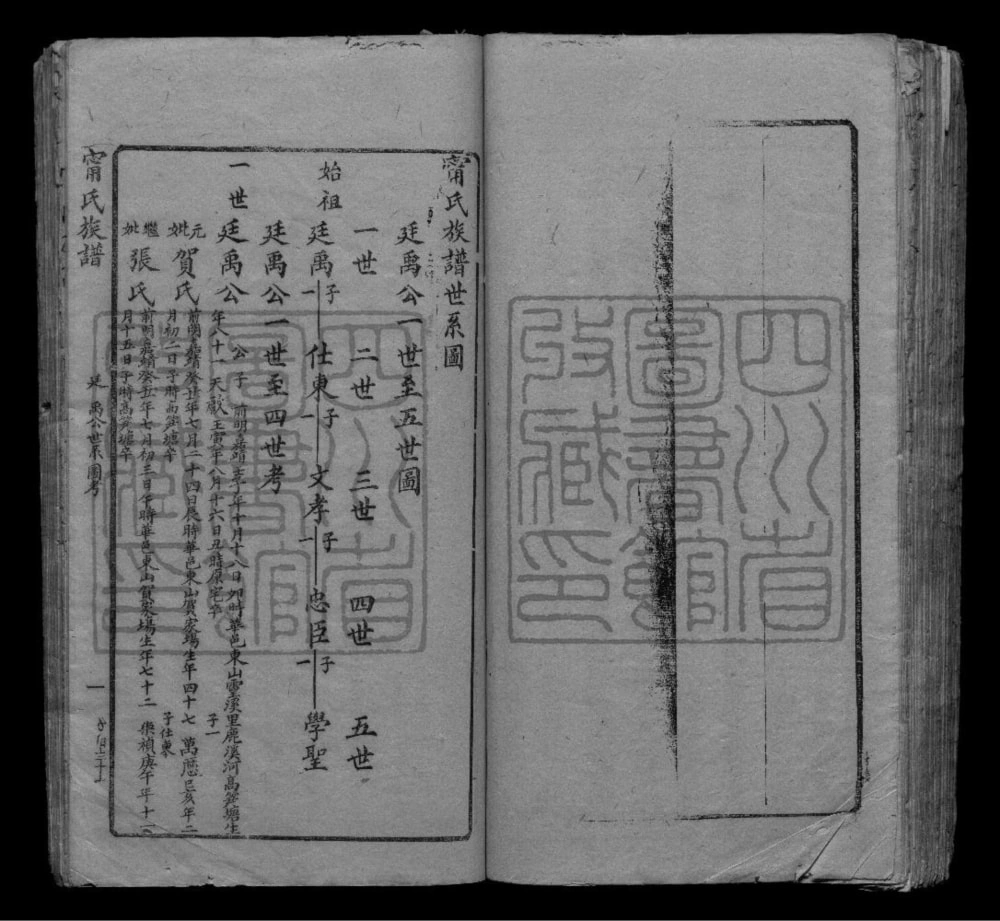 甯氏族譜世系圖
廷禹公一世至五世圖
一世 二世 三世 四世 五世
始祖 廷禹 子一 仕東 子一 文孝 子一 忠臣 子一 學聖
廷禹公一世至四世考
一世 廷禹公 公子 前明嘉靖壬子年十月十八日卯時華邑東山雪溪里鹿溪河高筧塘生
年八十一 天獻壬寅年八月十六日丑時原宅卒 子一
元妣賀氏 前明嘉靖癸丑年七月二十四日辰時華邑東山賀家場生年四十七 萬曆己亥年二
月初二日子時高筧塘卒 子仕東
繼妣張氏 前明嘉靖癸丑年七月初三日午時華邑東山賀家場生年七十二 崇禎庚午年十一
月十五日子時高筧塘卒
甯氏族譜
廷禹公世系圖考
一
四川省
圖書館
收藏印